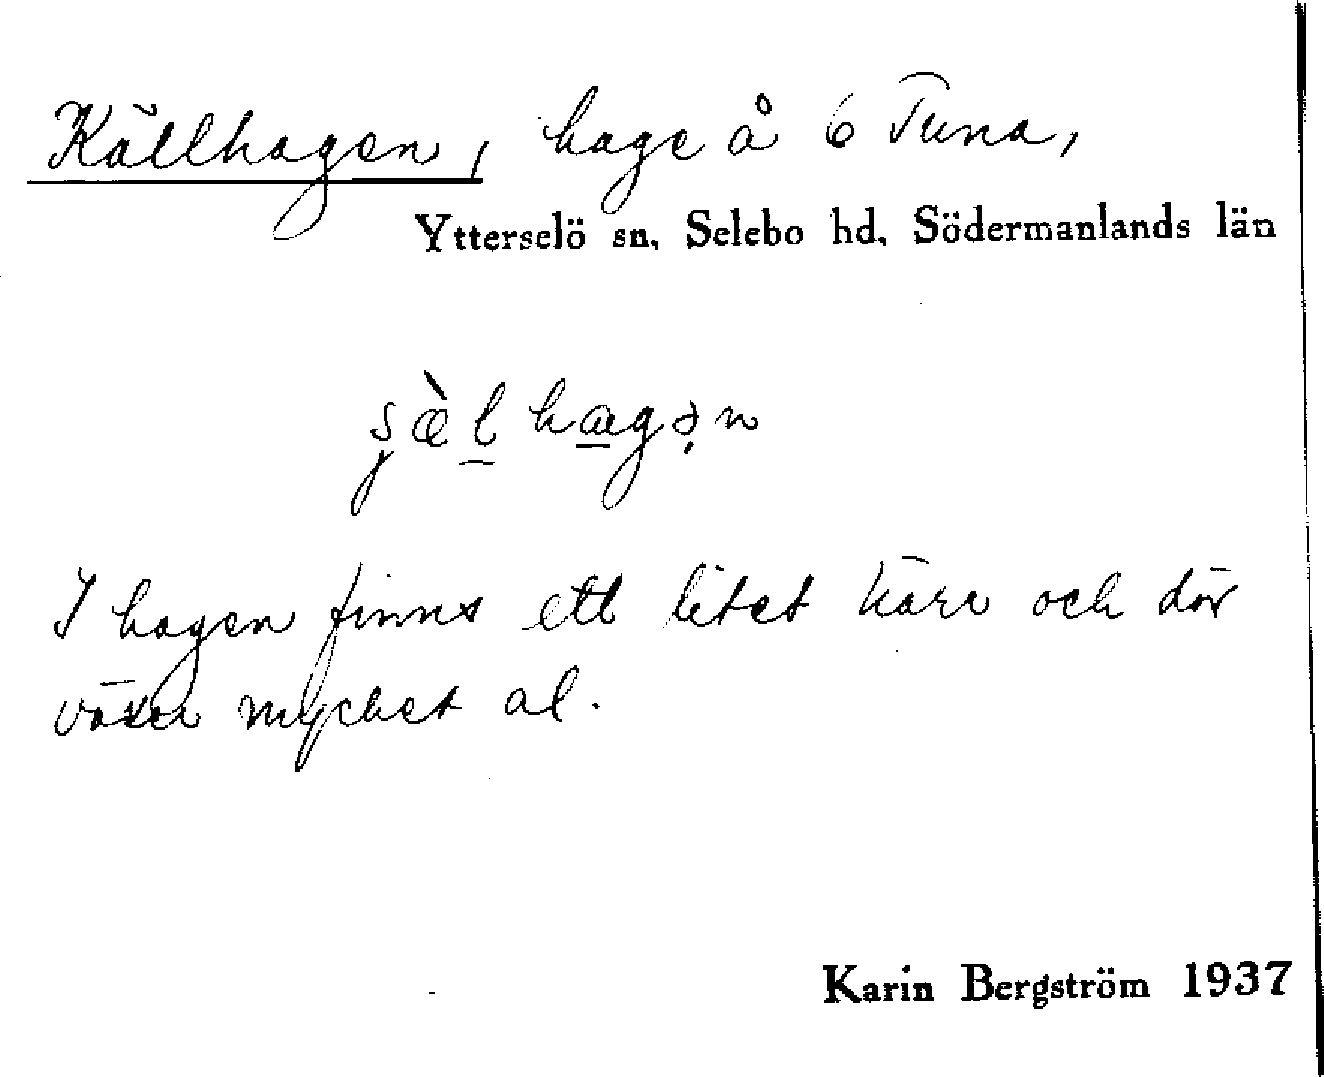 Källhagen, hage å 6 Tuna,
Ytterselö sn, Selebo hd, Södermanlands län
I hagen finns ett litet kärr och där
växer mycket al.
Karin Bergström 1937